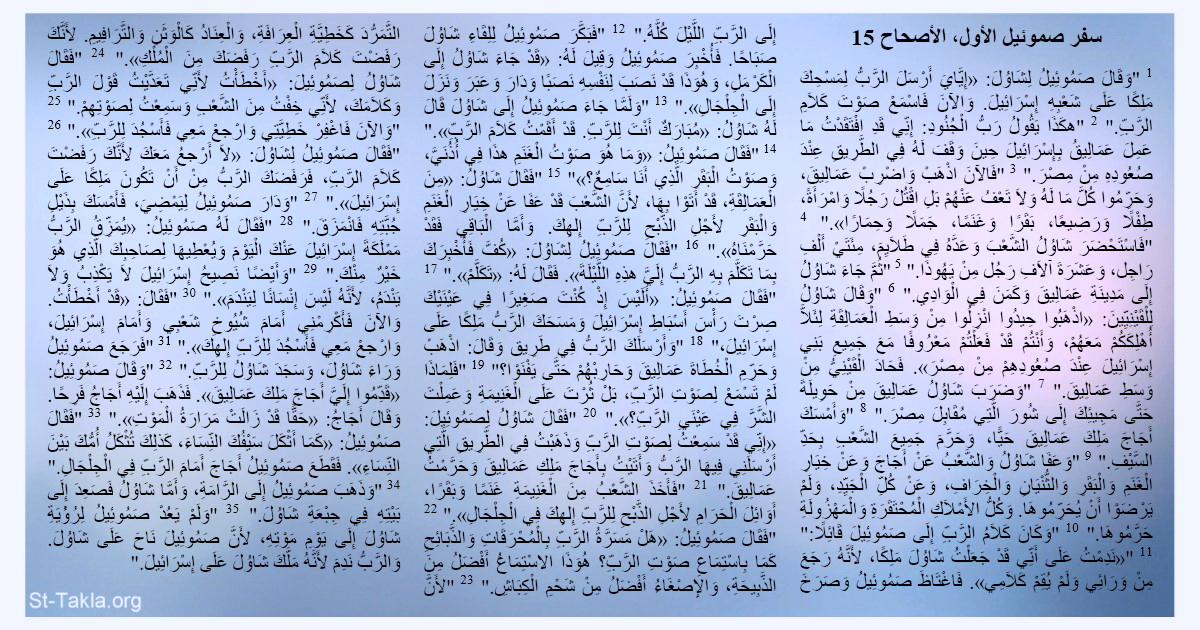 سفر صموئيل الأول، الأصحاح 15
1 "وَقَالَ صَمُوئِيلُ لِشَاوُلَ: «إِيَّايَ أَرْسَلَ الرَّبُّ لِمَسْحِكَ
مَلِكًا عَلَى شَعْبِهِ إِسْرَائِيلَ. وَالآنَ فَاسْمَعْ صَوْتَ كَلاَمِ
الرَّبِّ." 2 "هكَذَا يَقُولُ رَبُّ الْجُنُودِ: إِنِّي قَدِ افْتَقَدْتُ مَا
عَمِلَ عَمَالِيقُ بِإِسْرَائِيلَ حِينَ وَقَفَ لَهُ فِي الطَّرِيقِ عِنْدَ
صُعُودِهِ مِنْ مِصْرَ." 3 "فَالآنَ اذْهَبْ وَاضْرِبْ عَمَالِيقَ،
وَحَرِّمُوا كُلَّ مَا لَهُ وَلاَ تَعْفُ عَنْهُمْ بَلِ اقْتُلْ رَجُلًا وَامْرَأَةً،
طِفْلًا وَرَضِيعًا، بَقَرًا وَغَنَمًا، جَمَلًا وَحِمَارًا»." 4
"فَاسْتَحْضَرَ شَاوُلُ الشَّعْبَ وَعَدَّهُ فِي طَلاَيِمَ، مِئَتَيْ أَلْفِ
رَاجِل، وَعَشَرَةَ آلاَفِ رَجُل مِنْ يَهُوذَا." 5 "ثُمَّ جَاءَ شَاوُلُ
إِلَى مَدِينَةِ عَمَالِيقَ وَكَمَنَ فِي الْوَادِي." 6 "وَقَالَ شَاوُلُ
لِلْقَيْنِيِّينَ: «اذْهَبُوا حِيدُوا انْزِلُوا مِنْ وَسَطِ الْعَمَالِقَةِ لِئَلاَّ
أُهْلِكَكُمْ مَعَهُمْ، وَأَنْتُمْ قَدْ فَعَلْتُمْ مَعْرُوفًا مَعَ جَمِيعِ بَنِي
إِسْرَائِيلَ عِنْدَ صُعُودِهِمْ مِنْ مِصْرَ». فَحَادَ الْقَيْنِيُّ مِنْ
وَسَطِ عَمَالِيقَ." 7 "وَضَرَبَ شَاوُلُ عَمَالِيقَ مِنْ حَوِيلَةَ
حَتَّى مَجِيئِكَ إِلَى شُورَ الَّتِي مُقَابِلَ مِصْرَ." 8 "وَأَمْسَكَ
أَجَاجَ مَلِكَ عَمَالِيقَ حَيًّا، وَحَرَّمَ جَمِيعَ الشَّعْبِ بِحَدِّ
السَّيْفِ." 9 "وَعَفَا شَاوُلُ وَالشَّعْبُ عَنْ أَجَاجَ وَعَنْ خِيَارِ
الْغَنَمِ وَالْبَقَرِ وَالثُّنْيَانِ وَالْخِرَافِ، وَعَنْ كُلِّ الْجَيِّدِ، وَلَمْ
يَرْضَوْا أَنْ يُحَرِّمُوهَا. وَكُلُّ الأَمْلاَكِ الْمُحْتَقَرَةِ وَالْمَهْزُولَةِ
حَرَّمُوهَا." 10 "وَكَانَ كَلاَمُ الرَّبِّ إِلَى صَمُوئِيلَ قَائِلًا:"
11 "«نَدِمْتُ عَلَى أَنِّي قَدْ جَعَلْتُ شَاوُلَ مَلِكًا، لأَنَّهُ رَجَعَ
مِنْ وَرَائِي وَلَمْ يُقِمْ كَلاَمِي». فَاغْتَاظَ صَمُوئِيلُ وَصَرَخَ
إِلَى الرَّبِّ اللَّيْلَ كُلَّهُ." 12 "فَبَكَّرَ صَمُوئِيلُ لِلِقَاءِ شَاوُلَ
صَبَاحًا. فَأُخْبِرَ صَمُوئِيلُ وَقِيلَ لَهُ: «قَدْ جَاءَ شَاوُلُ إِلَى
الْكَرْمَلِ، وَهُوَذَا قَدْ نَصَبَ لِنَفْسِهِ نَصَبًا وَدَارَ وَعَبَرَ وَنَزَلَ
إِلَى الْجِلْجَالِ»." 13 "وَلَمَّا جَاءَ صَمُوئِيلُ إِلَى شَاوُلَ قَالَ
لَهُ شَاوُلُ: «مُبَارَكٌ أَنْتَ لِلرَّبِّ. قَدْ أَقَمْتُ كَلاَمَ الرَّبِّ»."
14 "فَقَالَ صَمُوئِيلُ: «وَمَا هُوَ صَوْتُ الْغَنَمِ هذَا فِي أُذُنَيَّ،
وَصَوْتُ الْبَقَرِ الَّذِي أَنَا سَامِعٌ؟»" 15 "فَقَالَ شَاوُلُ: «مِنَ
الْعَمَالِقَةِ، قَدْ أَتَوْا بِهَا، لأَنَّ الشَّعْبَ قَدْ عَفَا عَنْ خِيَارِ الْغَنَمِ
وَالْبَقَرِ لأَجْلِ الذَّبْحِ لِلرَّبِّ إِلهِكَ. وَأَمَّا الْبَاقِي فَقَدْ
حَرَّمْنَاهُ»." 16 "فَقَالَ صَمُوئِيلُ لِشَاوُلَ: «كُفَّ فَأُخْبِرَكَ
بِمَا تَكَلَّمَ بِهِ الرَّبُّ إِلَيَّ هذِهِ اللَّيْلَةَ». فَقَالَ لَهُ: «تَكَلَّمْ»." 17
"فَقَالَ صَمُوئِيلُ: «أَلَيْسَ إِذْ كُنْتَ صَغِيرًا فِي عَيْنَيْكَ
صِرْتَ رَأْسَ أَسْبَاطِ إِسْرَائِيلَ وَمَسَحَكَ الرَّبُّ مَلِكًا عَلَى
إِسْرَائِيلَ،" 18 "وَأَرْسَلَكَ الرَّبُّ فِي طَرِيق وَقَالَ: اذْهَبْ
وَحَرِّمِ الْخُطَاةَ عَمَالِيقَ وَحَارِبْهُمْ حَتَّى يَفْنَوْا؟" 19 "فَلِمَاذَا
لَمْ تَسْمَعْ لِصَوْتِ الرَّبِّ، بَلْ ثُرْتَ عَلَى الْغَنِيمَةِ وَعَمِلْتَ
الشَّرَّ فِي عَيْنَيِ الرَّبِّ؟»." 20 "فَقَالَ شَاوُلُ لِصَمُوئِيلَ:
«إِنِّي قَدْ سَمِعْتُ لِصَوْتِ الرَّبِّ وَذَهَبْتُ فِي الطَّرِيقِ الَّتِي
أَرْسَلَنِي فِيهَا الرَّبُّ وَأَتَيْتُ بِأَجَاجَ مَلِكِ عَمَالِيقَ وَحَرَّمْتُ
عَمَالِيقَ." 21 "فَأَخَذَ الشَّعْبُ مِنَ الْغَنِيمَةِ غَنَمًا وَبَقَرًا،
أَوَائِلَ الْحَرَامِ لأَجْلِ الذَّبْحِ لِلرَّبِّ إِلهِكَ فِي الْجِلْجَالِ»." 22
"فَقَالَ صَمُوئِيلُ: «هَلْ مَسَرَّةُ الرَّبِّ بِالْمُحْرَقَاتِ وَالذَّبَائِحِ
كَمَا بِاسْتِمَاعِ صَوْتِ الرَّبِّ؟ هُوَذَا الاسْتِمَاعُ أَفْضَلُ مِنَ
الذَّبِيحَةِ، وَالإِصْغَاءُ أَفْضَلُ مِنْ شَحْمِ الْكِبَاشِ." 23 "لأَنَّ
التَّمَرُّدَ كَخَطِيَّةِ الْعِرَافَةِ، وَالْعِنَادُ كَالْوَثَنِ وَالتَّرَافِيمِ. لأَنَّكَ
رَفَضْتَ كَلاَمَ الرَّبِّ رَفَضَكَ مِنَ الْمُلْكِ»." 24 "فَقَالَ
شَاوُلُ لِصَمُوئِيلَ: «أَخْطَأْتُ لأَنِّي تَعَدَّيْتُ قَوْلَ الرَّبِّ
وَكَلاَمَكَ، لأَنِّي خِفْتُ مِنَ الشَّعْبِ وَسَمِعْتُ لِصَوْتِهِمْ." 25
"وَالآنَ فَاغْفِرْ خَطِيَّتِي وَارْجعْ مَعِي فَأَسْجُدَ لِلرَّبِّ»." 26
"فَقَالَ صَمُوئِيلُ لِشَاوُلَ: «لاَ أَرْجعُ مَعَكَ لأَنَّكَ رَفَضْتَ
كَلاَمَ الرَّبِّ، فَرَفَضَكَ الرَّبُّ مِنْ أَنْ تَكُونَ مَلِكًا عَلَى
إِسْرَائِيلَ»." 27 "وَدَارَ صَمُوئِيلُ لِيَمْضِيَ، فَأَمْسَكَ بِذَيْلِ
جُبَّتِهِ فَانْمَزَقَ." 28 "فَقَالَ لَهُ صَمُوئِيلُ: «يُمَزِّقُ الرَّبُّ
مَمْلَكَةَ إِسْرَائِيلَ عَنْكَ الْيَوْمَ وَيُعْطِيهَا لِصَاحِبِكَ الَّذِي هُوَ
خَيْرٌ مِنْكَ." 29 "وَأَيْضًا نَصِيحُ إِسْرَائِيلَ لاَ يَكْذِبُ وَلاَ
يَنْدَمُ، لأَنَّهُ لَيْسَ إِنْسَانًا لِيَنْدَمَ»." 30 "فَقَالَ: «قَدْ أَخْطَأْتُ.
وَالآنَ فَأَكْرِمْنِي أَمَامَ شُيُوخِ شَعْبِي وَأَمَامَ إِسْرَائِيلَ،
وَارْجعْ مَعِي فَأَسْجُدَ لِلرَّبِّ إِلهِكَ»." 31 "فَرَجَعَ صَمُوئِيلُ
وَرَاءَ شَاوُلَ، وَسَجَدَ شَاوُلُ لِلرَّبِّ." 32 "وَقَالَ صَمُوئِيلُ:
«قَدِّمُوا إِلَيَّ أَجَاجَ مَلِكَ عَمَالِيقَ». فَذَهَبَ إِلَيْهِ أَجَاجُ فَرِحًا.
وَقَالَ أَجَاجُ: «حَقًّا قَدْ زَالَتْ مَرَارَةُ الْمَوْتِ»." 33 "فَقَالَ
صَمُوئِيلُ: «كَمَا أَثْكَلَ سَيْفُكَ النِّسَاءَ، كَذلِكَ تُثْكَلُ أُمُّكَ بَيْنَ
النِّسَاءِ». فَقَطَعَ صَمُوئِيلُ أَجَاجَ أَمَامَ الرَّبِّ فِي الْجِلْجَالِ."
34 "وَذَهَبَ صَمُوئِيلُ إِلَى الرَّامَةِ، وَأَمَّا شَاوُلُ فَصَعِدَ إِلَى
بَيْتِهِ فِي جِبْعَةِ شَاوُلَ." 35 "وَلَمْ يَعُدْ صَمُوئِيلُ لِرُؤْيَةِ
شَاوُلَ إِلَى يَوْمِ مَوْتِهِ، لأَنَّ صَمُوئِيلَ نَاحَ عَلَى شَاوُلَ.
وَالرَّبُّ نَدِمَ لأَنَّهُ مَلَّكَ شَاوُلَ عَلَى إِسْرَائِيلَ."
St-Takla.org